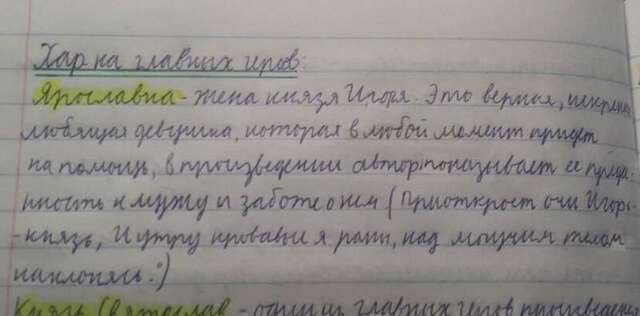 Хар ка главных геров:
Ярославна - жена князя Игоря. Это верная, искренне
любящая девушка, которая в любой момент придет
на помощь, в произведении автор показывает ее преда-
нность к мужу и заботе о нем (Приоткроет очи Игорь
-князь, И утру кровавые я раны, над могучим телом
наклонясь.")
Князь Святослав - один из главных геров произведен